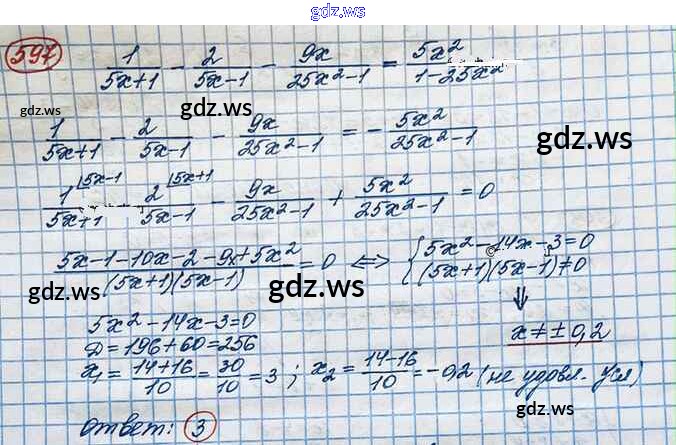 gdz.ws
597 1/(5x+1) - 2/(5x-1) - 9x/(25x²-1) = 5x²/(1-25x²)
gdz.ws gdz.ws
1/(5x+1) - 2/(5x-1) - 9x/(25x²-1) = - 5x²/(25x²-1)
gdz.ws
1^(5x-1)/(5x+1) - 2^(5x+1)/(5x-1) - 9x/(25x²-1) + 5x²/(25x²-1) = 0
gdz.ws
(5x-1-10x-2-9x+5x²)/((5x+1)(5x-1)) = 0 ⇔ { 5x²-14x-3=0
(5x+1)(5x-1)≠0
gdz.ws gdz.ws gdz.ws
⇓
5x²-14x-3=0
x≠±0,2
D=196+60=256
x₁ = (14+16)/10 = 30/10 = 3 ; x₂ = (14-16)/10 = -0,2 (не удовл. усл)
gdz.ws gdz.ws
ответ: 3